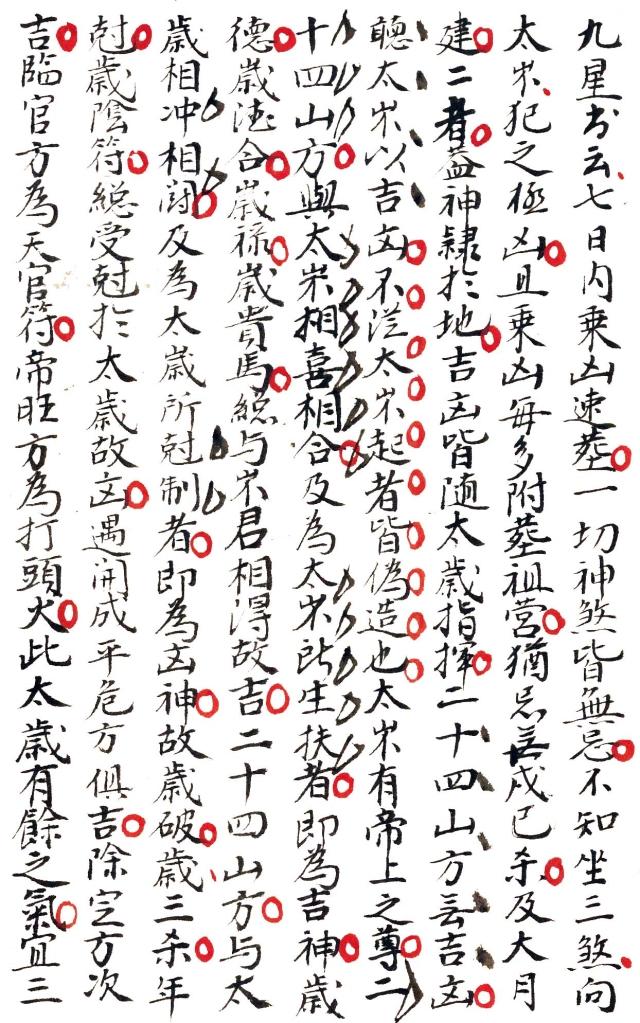 九星书云七日内乗凶速塟一切神煞皆無忌不知坐三煞向
太岁犯之極凶且乗凶每多附塟祖营猶忌戊己杀及大月
建二者葢神隷扵地吉凶皆随太歳指揮二十四山方吉凶
聽太岁以吉凶不從太岁起者皆偽造也太岁有帝上之尊二
十四山方與太岁相喜相合及為太岁所生扶者即為吉神歳
德歳合歳禄歳貴馬緫与岁君相得故吉二十四山方与太
歳相冲相闘及為太歳所尅制者即為凶神故歳破歳三杀年
尅歳陰符緫受尅扵太歳故凶遇開成平危方俱吉除定方次
吉臨官方為天官符帝旺方為打頭火此太歳有餘之氣宜三